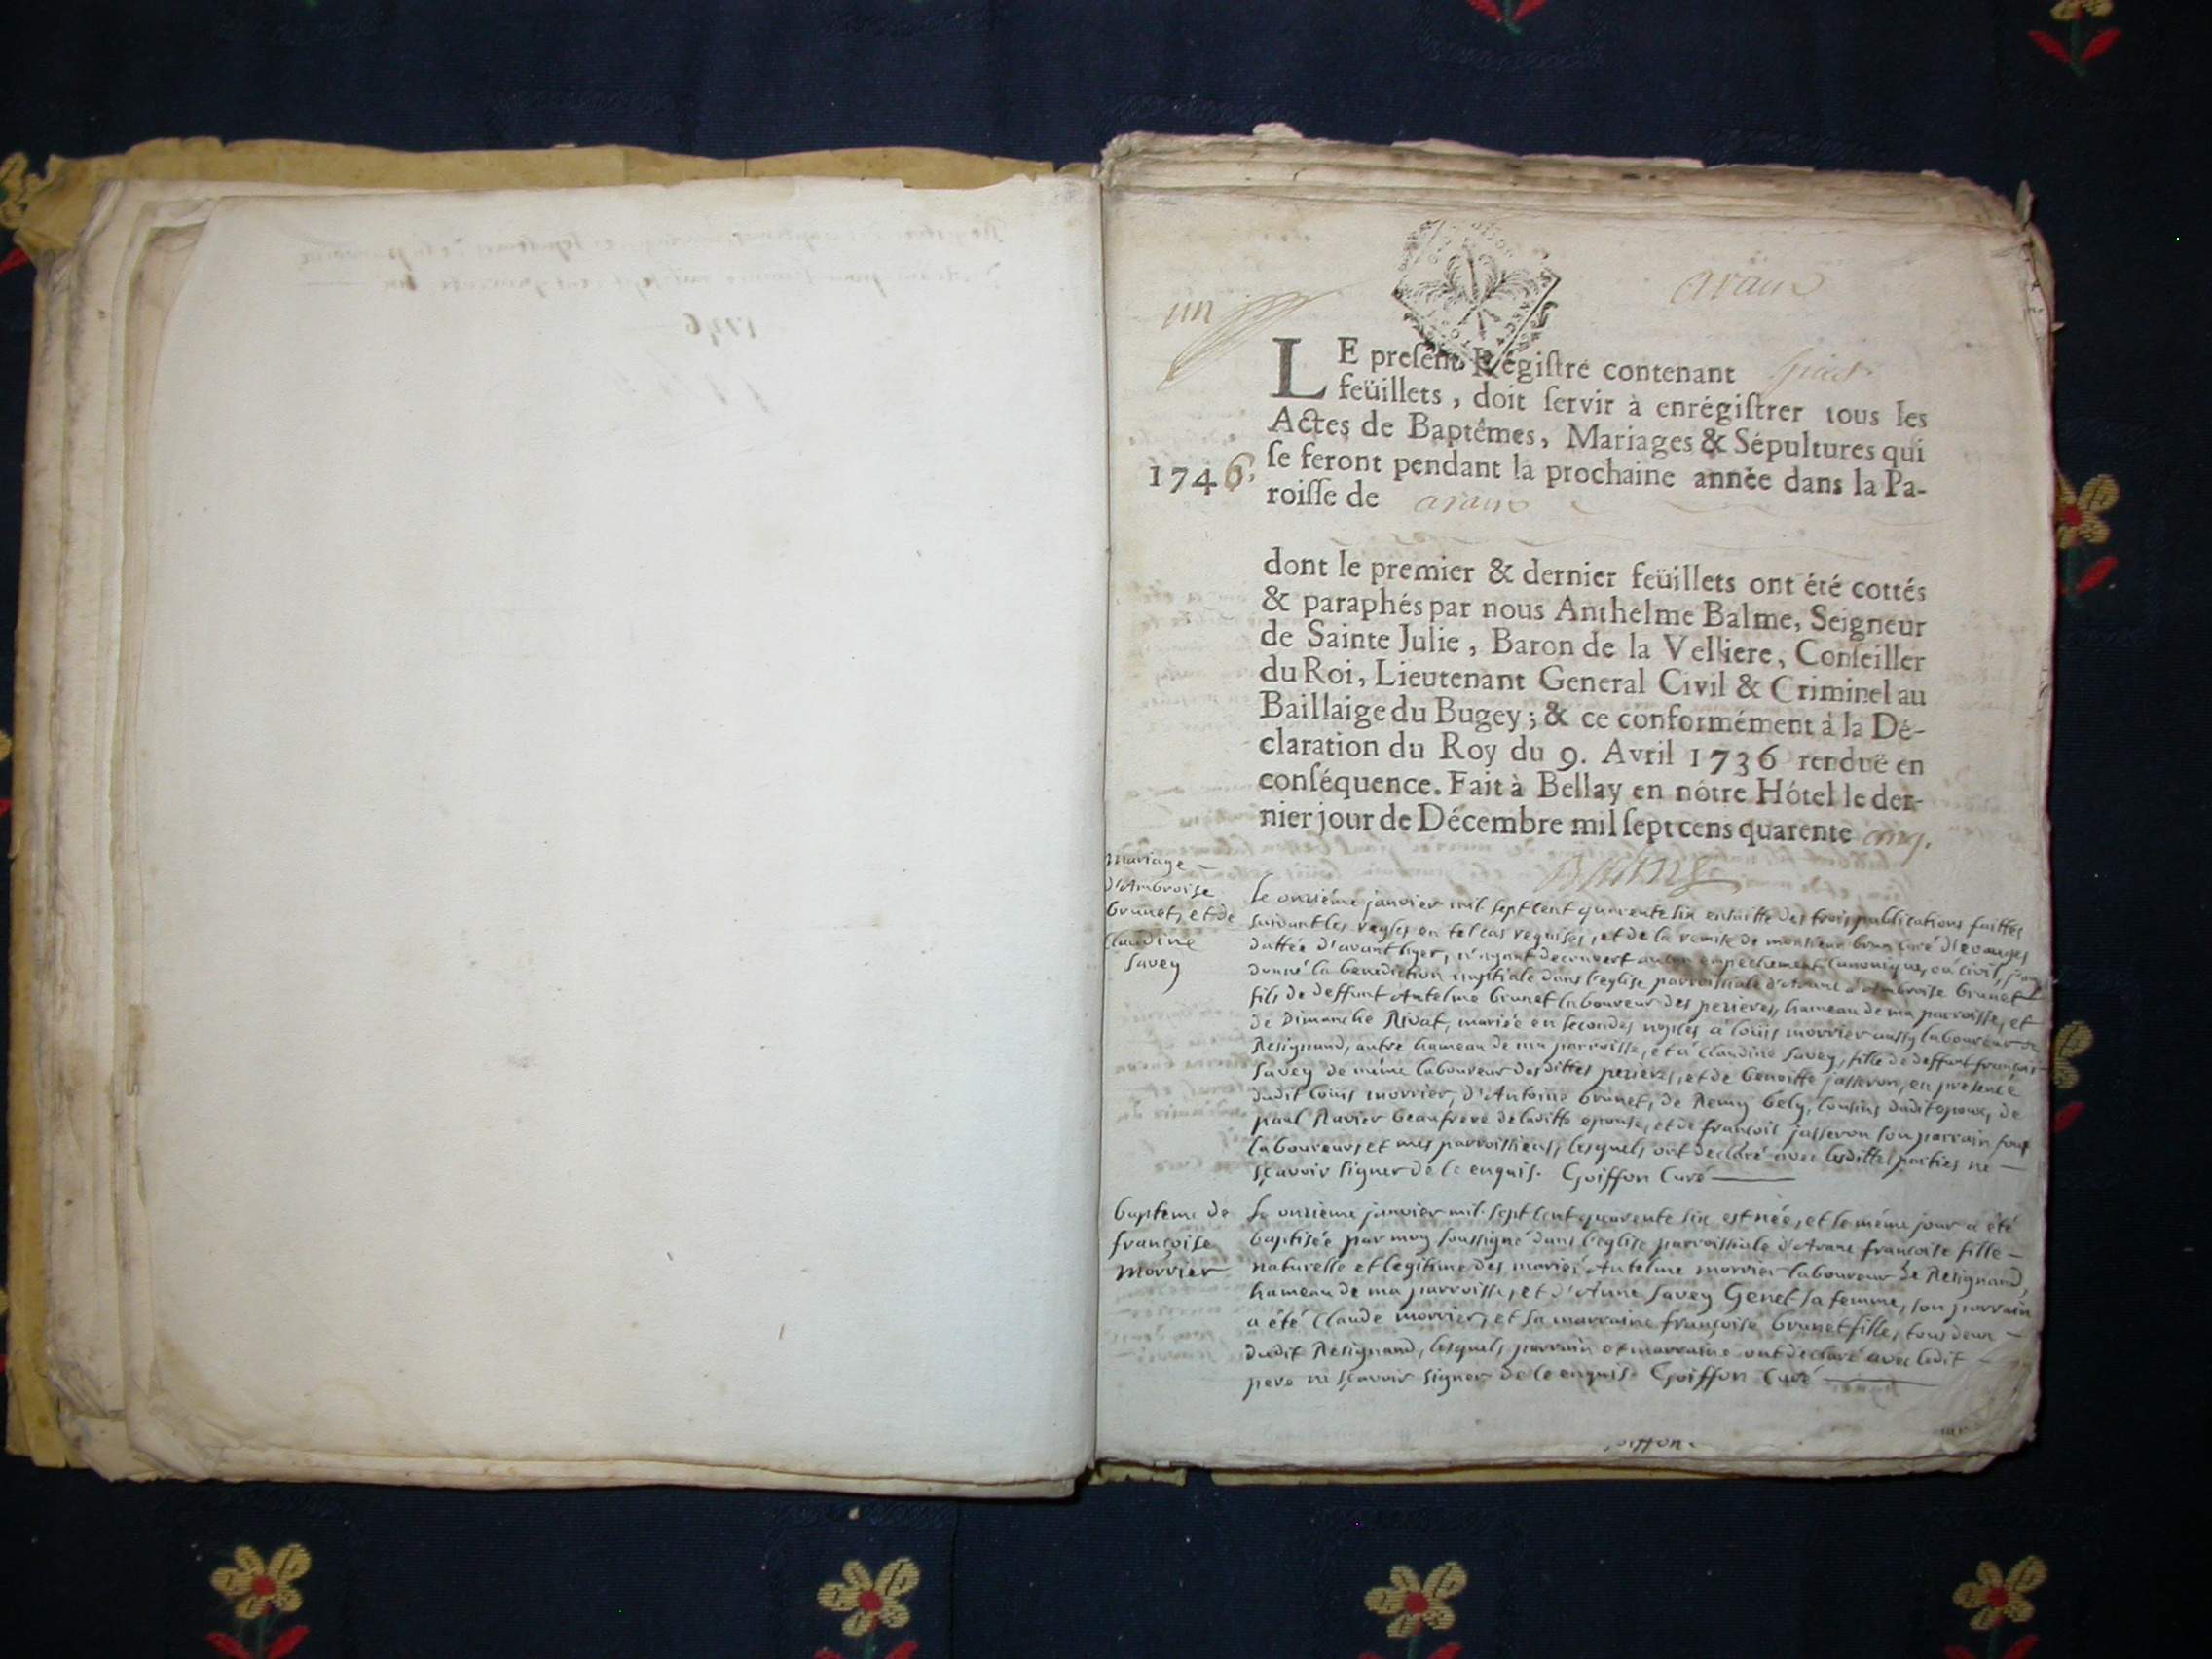 un
arane
LE preſent Régiſtre contenant huit
feüillets, doit ſervir à enrégiſtrer tous les
Actes de Baptêmes, Mariages & Sépultures qui
ſe feront pendant la prochaine année dans la Pa-
1746.
roiſſe de arane
dont le premier & dernier feüillets ont été cottés
& paraphés par nous Anthelme Balme, Seigneur
de Sainte Julie, Baron de la Velliere, Conſeiller
du Roi, Lieutenant General Civil & Criminel au
Baillaige du Bugey; & ce conformément à la Dé-
claration du Roy du 9. Avril 1736 renduë en
conſéquence. Fait à Bellay en nôtre Hôtel le der-
nier jour de Décembre mil ſept cens quarente cinq.
Balme
mariage
d'Ambroise
brunet, et de
Claudine
Savey
Le onzième janvier mil sept cent quarente six ensuitte des trois publications faittes
suivant les regles en tel cas requises, et de la remise de monsieur brun curé d'evouges
dattée d'avant hyer, n'ayant decouvert aucun empechement canonique, ou civil, j'ay
donné la benediction nuptiale dans l'eglise parroissiale d'Arane a Ambroise brunet
fils de deffunt Antelme brunet laboureur des perieres, hameau de ma parroisse, et
de Dimanche Rivat, mariée en secondes nopces à loüis morrier aussy laboureur de
Resignand, autre hameau de ma parroisse, et à Claudine Savey, fille de deffunt françois
Savey de même laboureur desdittes perieres, et de benoitte jasseron, en presence
dudit loüis morrier, d'Antoine brunet, de Remy bely, cousins dudit epoux, de
paul Ravier beaufrere de laditte epouse, et de françois jasseron son parrain tous
laboureurs et mes parroissiens, lesquels ont declaré avec lesdittes parties ne
sçavoir signer de ce enquis. Goiffon Curé
baptême de
françoise
Morrier
Le onzième janvier mil sept cent quarente six est née, et le même jour a été
baptisée par moy soussigné dans l'eglise parroissiale d'Arane françoise fille
naturelle et legitime des mariés Antelme morrier laboureur de Resignand,
hameau de ma parroisse, et d'Anne Savey Genet sa femme, son parrain
a été Claude morrier, et sa marraine françoise brunet fille, tous deux
dudit Resignand, lesquels parrain et marraine ont declaré avec ledit
pere ne sçavoir signer de ce enquis. Goiffon Curé